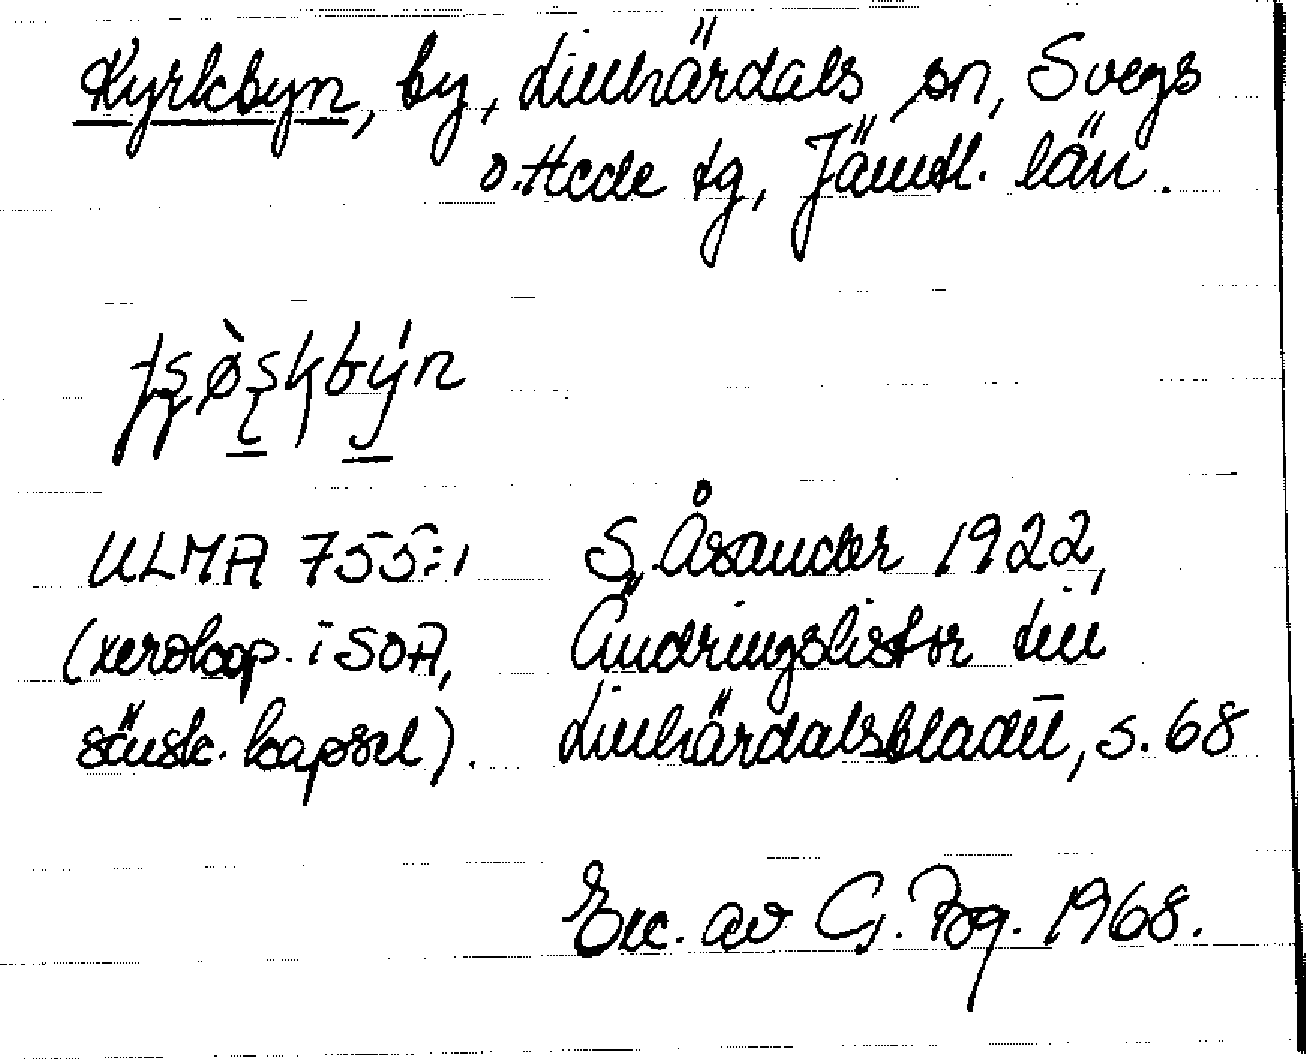 Kyrkbyn, by, Lillhärdals sn, Svegs
o. Hede tg, Jämtl. län.
ULMA 755:1 S. Åsander 1922,
(xerokop. i SOA, Ändringslistor till
särsk. kapsel). Lillhärdalsbladet, s. 68
Exc. av G. Bg. 1968.